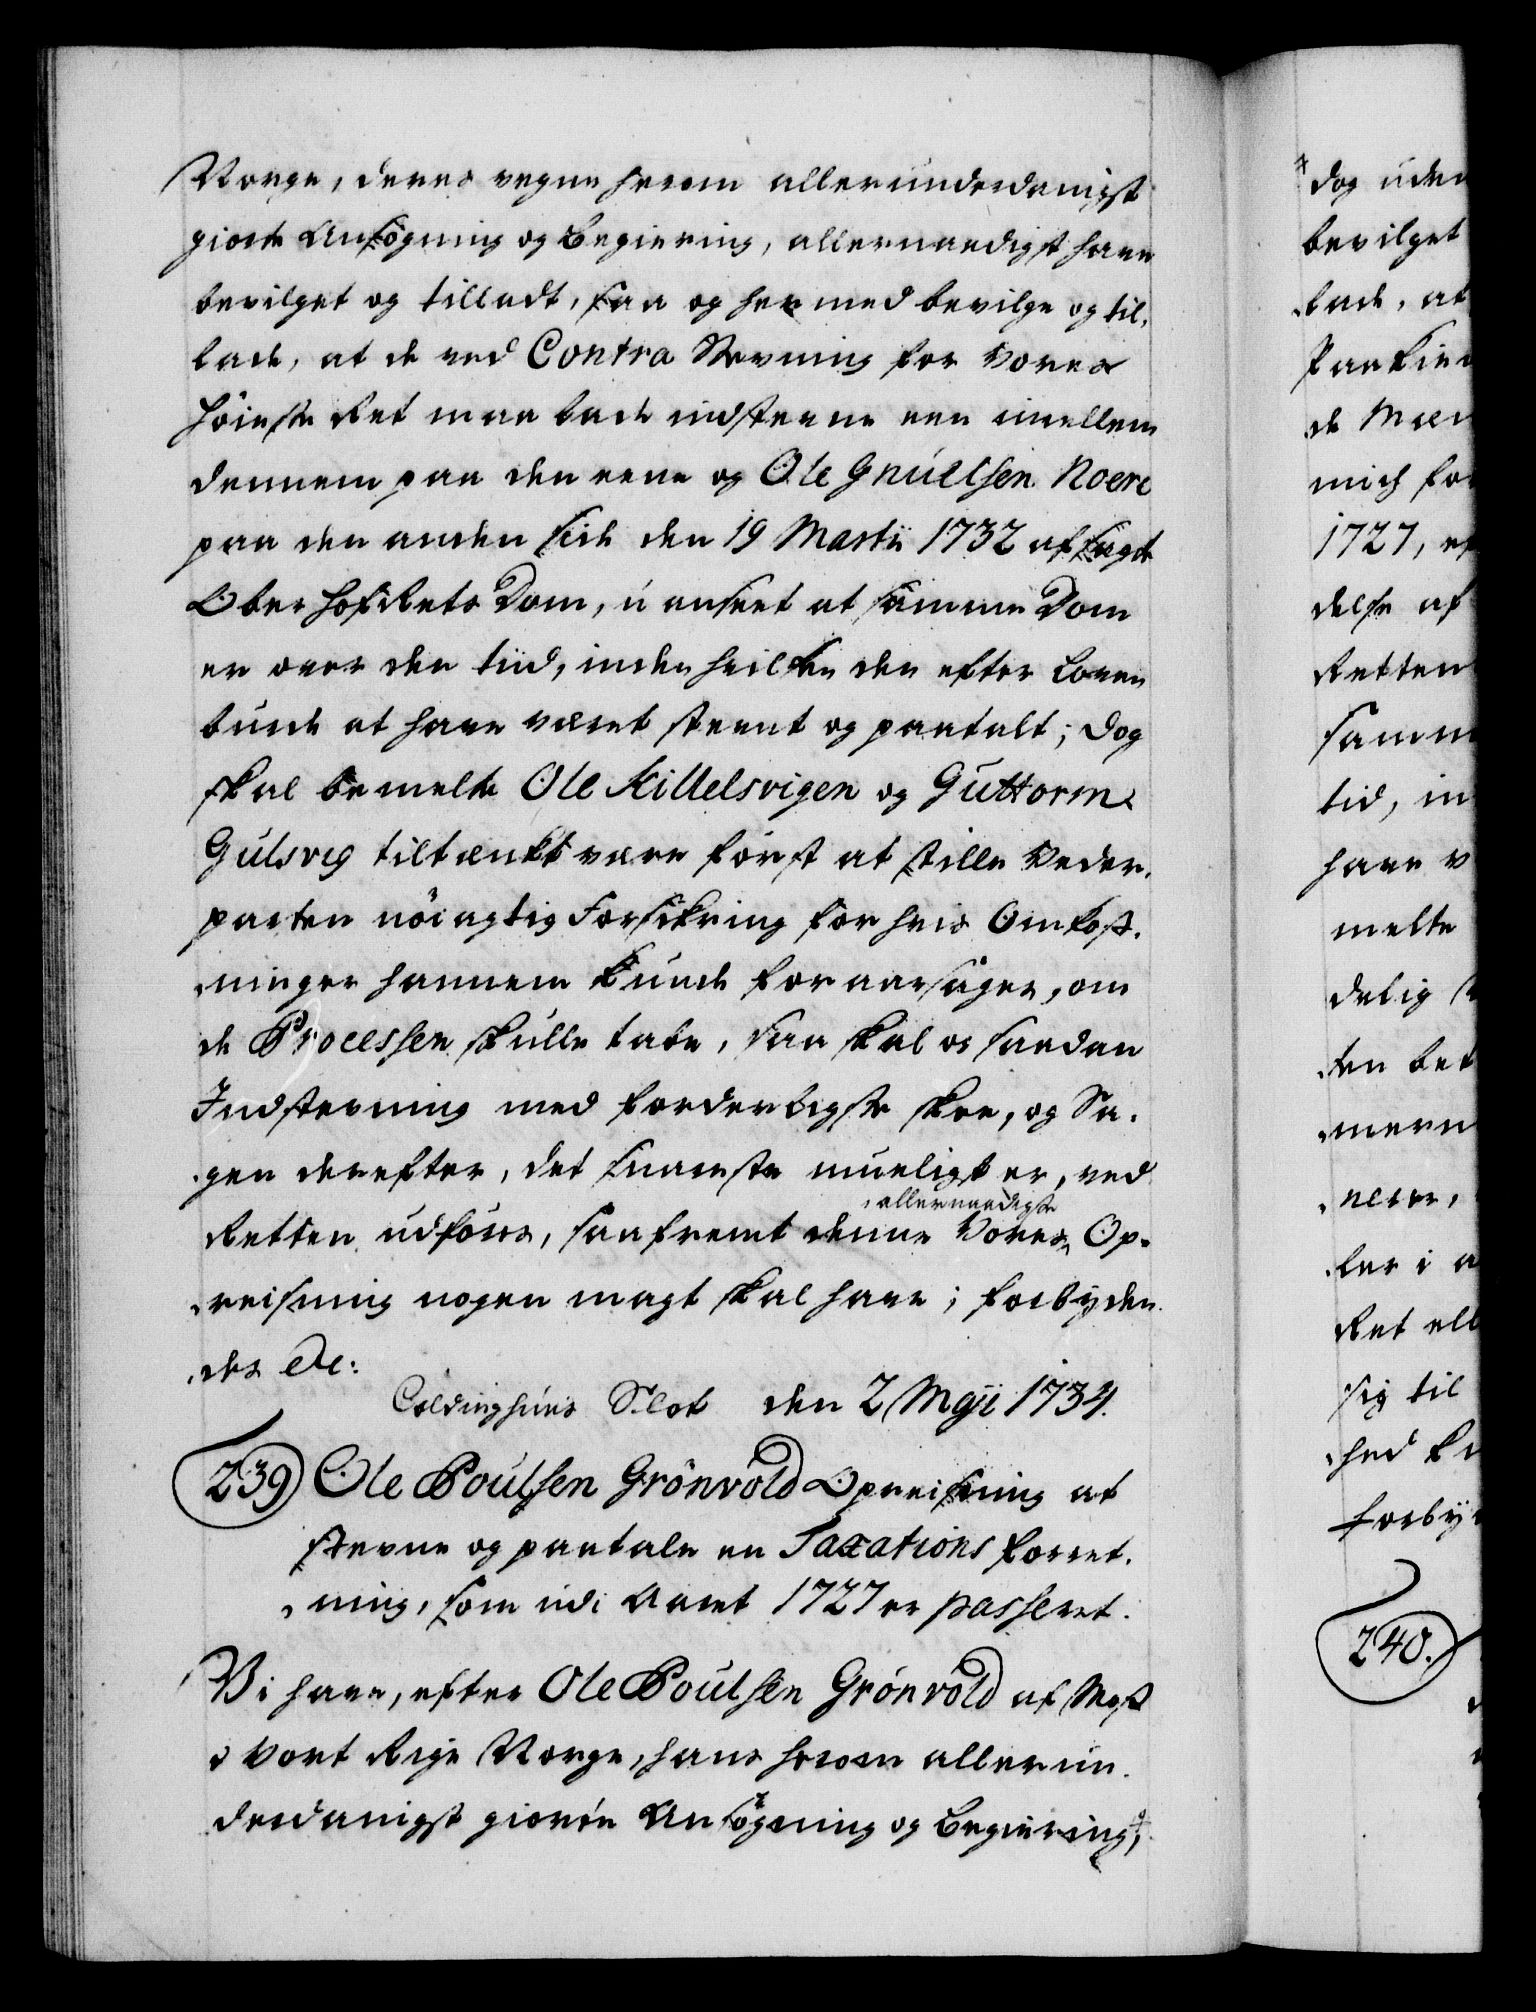 Norge, deres vegne herom allerunderdanigst
giorte Ansøgning og Begiering, allernaadigst have
bevilget og tilladt, saa og hermed bevilge og til,
lade, at de ved Contra Stevning for Vores
Høieste Ret maa lade indstevne een imellem
dennem paa den eene og Ole Gnuelsen Noere
paa den anden side den 19 Martii 1732 afsagt
OberhofRets Dom, uanseet at samme Dom
er over den tiid, inden hvilken den efter Loven
burde at have været stevnt og paatalt; dog
skal bemelte Ole Killelsvigen og Guttorm
Gulsvig tiltænkt være først at stille Veder,
parten nöiagtig Forsikring for hvis Omkost,
,ninger hannem kunde foraarsages, om
de Processen skulle tabe, saa skal og saadan
Indstevning med forderligste skee, og Sa,
,gen derefter, det snareste mueligt er, ved
Retten udføres, saafremt denne Vores Op,
,allernaadigste
,reisning nogen magt skal have; forbyden
,des etc:
Coldinghuus Slot den 2 Maji 1734.
239 Ole Poulsen Grönvold Opreisning at
stevne og paatale en Taxations forret,
,ning, som udi Aaret 1727 er passeret.
Vi have, efter Ole Poulsen Grönvold af
i vort Rige Norge, hans herom allerun,
derdanigst giorte Ansøgning og Begiering,
dog uden
bevilget
,lade, at
de
1727,
delse af
Retten
samm
tid, in
have v
melte
delig
,ten bet
,ler i a
Ret ell
sig til
,hed
forby
240.